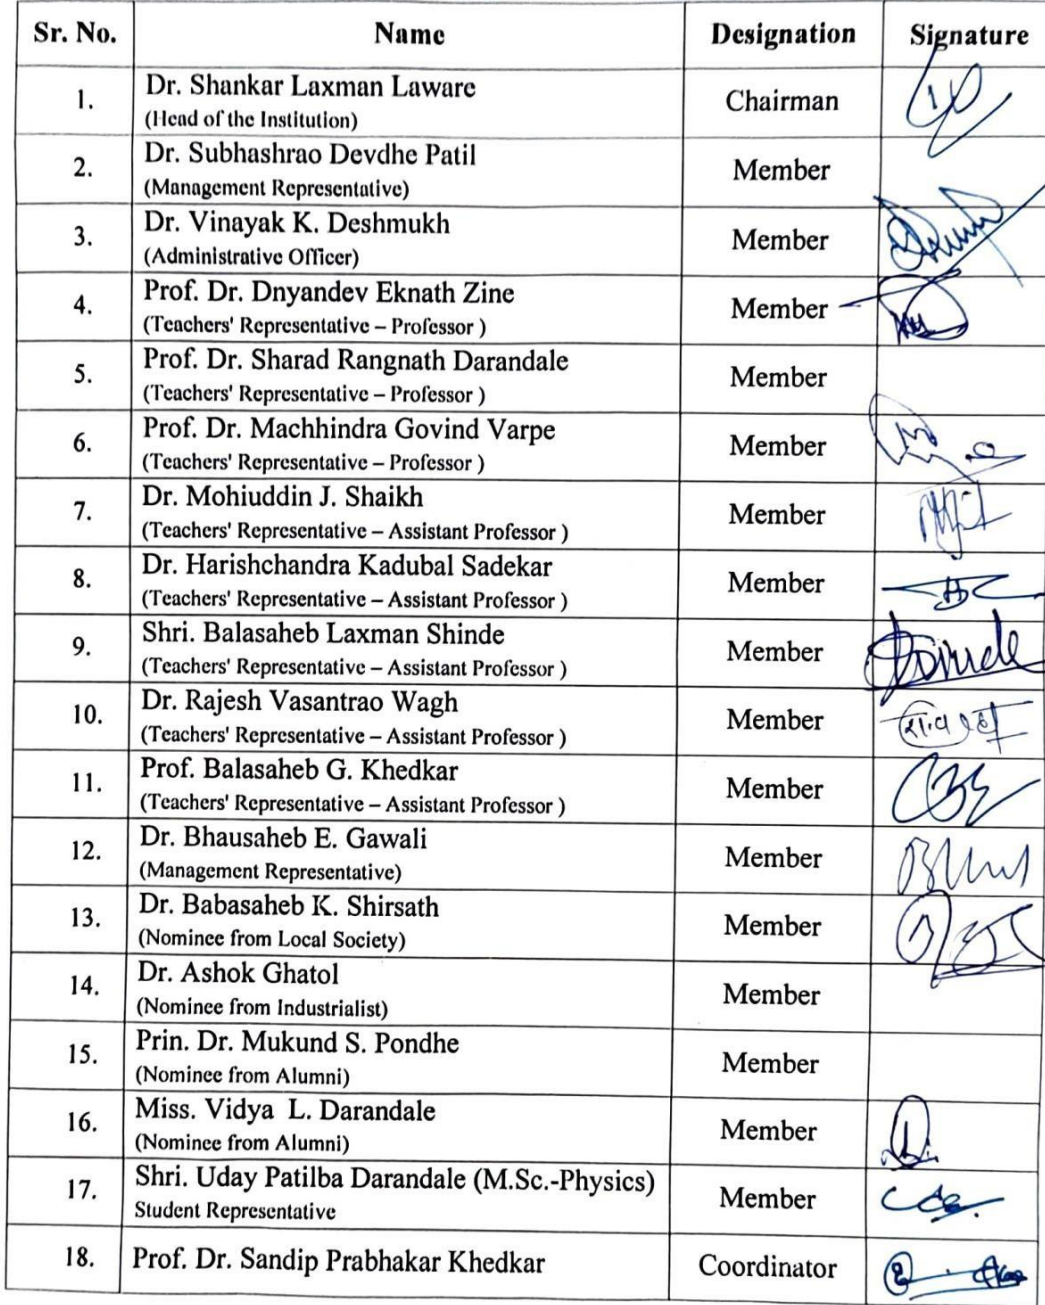 Sr. No. Name Designation Signature
1. Dr. Shankar Laxman Laware Chairman
(Head of the Institution)
2. Dr. Subhashrao Devdhe Patil Member
(Management Representative)
3. Dr. Vinayak K. Deshmukh Member
(Administrative Officer)
4. Prof. Dr. Dnyandev Eknath Zine Member
(Teachers' Representative – Professor )
5. Prof. Dr. Sharad Rangnath Darandale Member
(Teachers' Representative – Professor )
6. Prof. Dr. Machhindra Govind Varpe Member
(Teachers' Representative – Professor )
7. Dr. Mohiuddin J. Shaikh Member
(Teachers' Representative – Assistant Professor )
8. Dr. Harishchandra Kadubal Sadekar Member
(Teachers' Representative – Assistant Professor )
9. Shri. Balasaheb Laxman Shinde Member
(Teachers' Representative – Assistant Professor )
10. Dr. Rajesh Vasantrao Wagh Member
(Teachers' Representative – Assistant Professor )
11. Prof. Balasaheb G. Khedkar Member
(Teachers' Representative – Assistant Professor )
12. Dr. Bhausaheb E. Gawali Member
(Management Representative)
13. Dr. Babasaheb K. Shirsath Member
(Nominee from Local Society)
14. Dr. Ashok Ghatol Member
(Nominee from Industrialist)
15. Prin. Dr. Mukund S. Pondhe Member
(Nominee from Alumni)
16. Miss. Vidya L. Darandale Member
(Nominee from Alumni)
17. Shri. Uday Patilba Darandale (M.Sc.-Physics) Member
Student Representative
18. Prof. Dr. Sandip Prabhakar Khedkar Coordinator